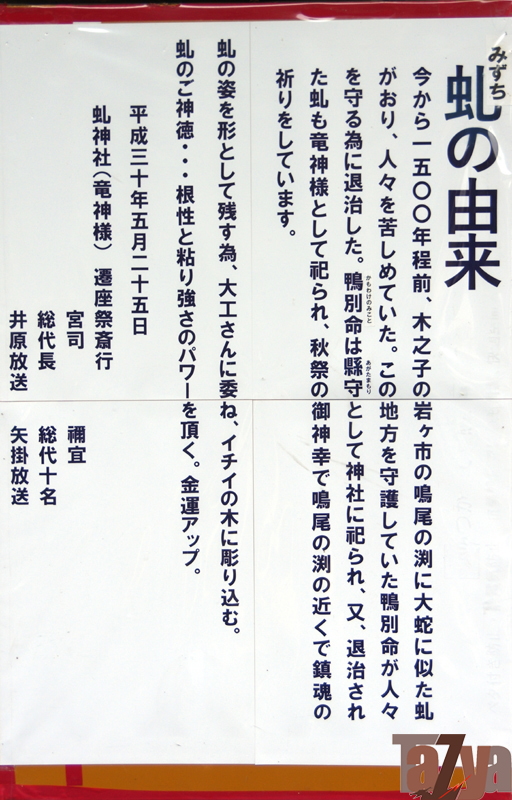 みずち
虬の由来
今から一五〇〇年程前、木之子の岩ヶ市の鳴尾の渕に大蛇に似た虬
がおり、人々を苦しめていた。この地方を守護していた鴨別命が人々
かもわけのみこと
を守る為に退治した。鴨別命は縣守として神社に祀られ、又、退治され
あがたまもり
た虬も竜神様として祀られ、秋祭の御神幸で鳴尾の渕の近くで鎮魂の
祈りをしています。
虬の姿を形として残す為、大工さんに委ね、イチイの木に彫り込む。
虬のご神徳・・・根性と粘り強さのパワーを頂く。金運アップ。
平成三十年五月二十五日
虬神社（竜神様） 遷座祭斎行
宮司 禰宜
総代長 総代十名
井原放送 矢掛放送
TaZya